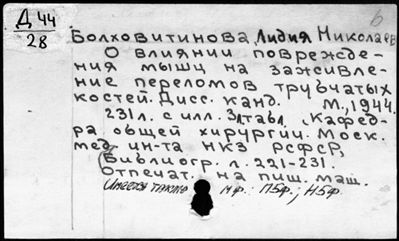 Д 44
28
Болховитинова, Лидия Николаев
О влиянии поврежде-
ния мышц на заживле-
ние переломов трубчатых
костей. Дисс. канд. М., 1944.
231 л. с илл. 3 л. табл. (Кафед-
ра общей хирургии. Моск.
мед. ин-та НКЗ РСФСР.
Библиогр. л. 221-231.
Отпечат. на пиш. маш.
Имеется также м.ф.: ПБФ.; НБФ.